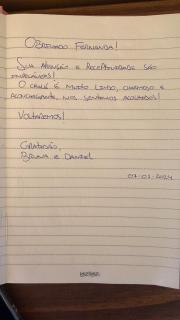 Obrigado Fernanda!
Sua atenção e receptividade são
impecáveis!
O chalé é muito lindo, charmoso e
aconchegante, nos sentimos acolhidos!
Voltaremos!
Gratidão,
Bruna e Daniel
07-01-2024